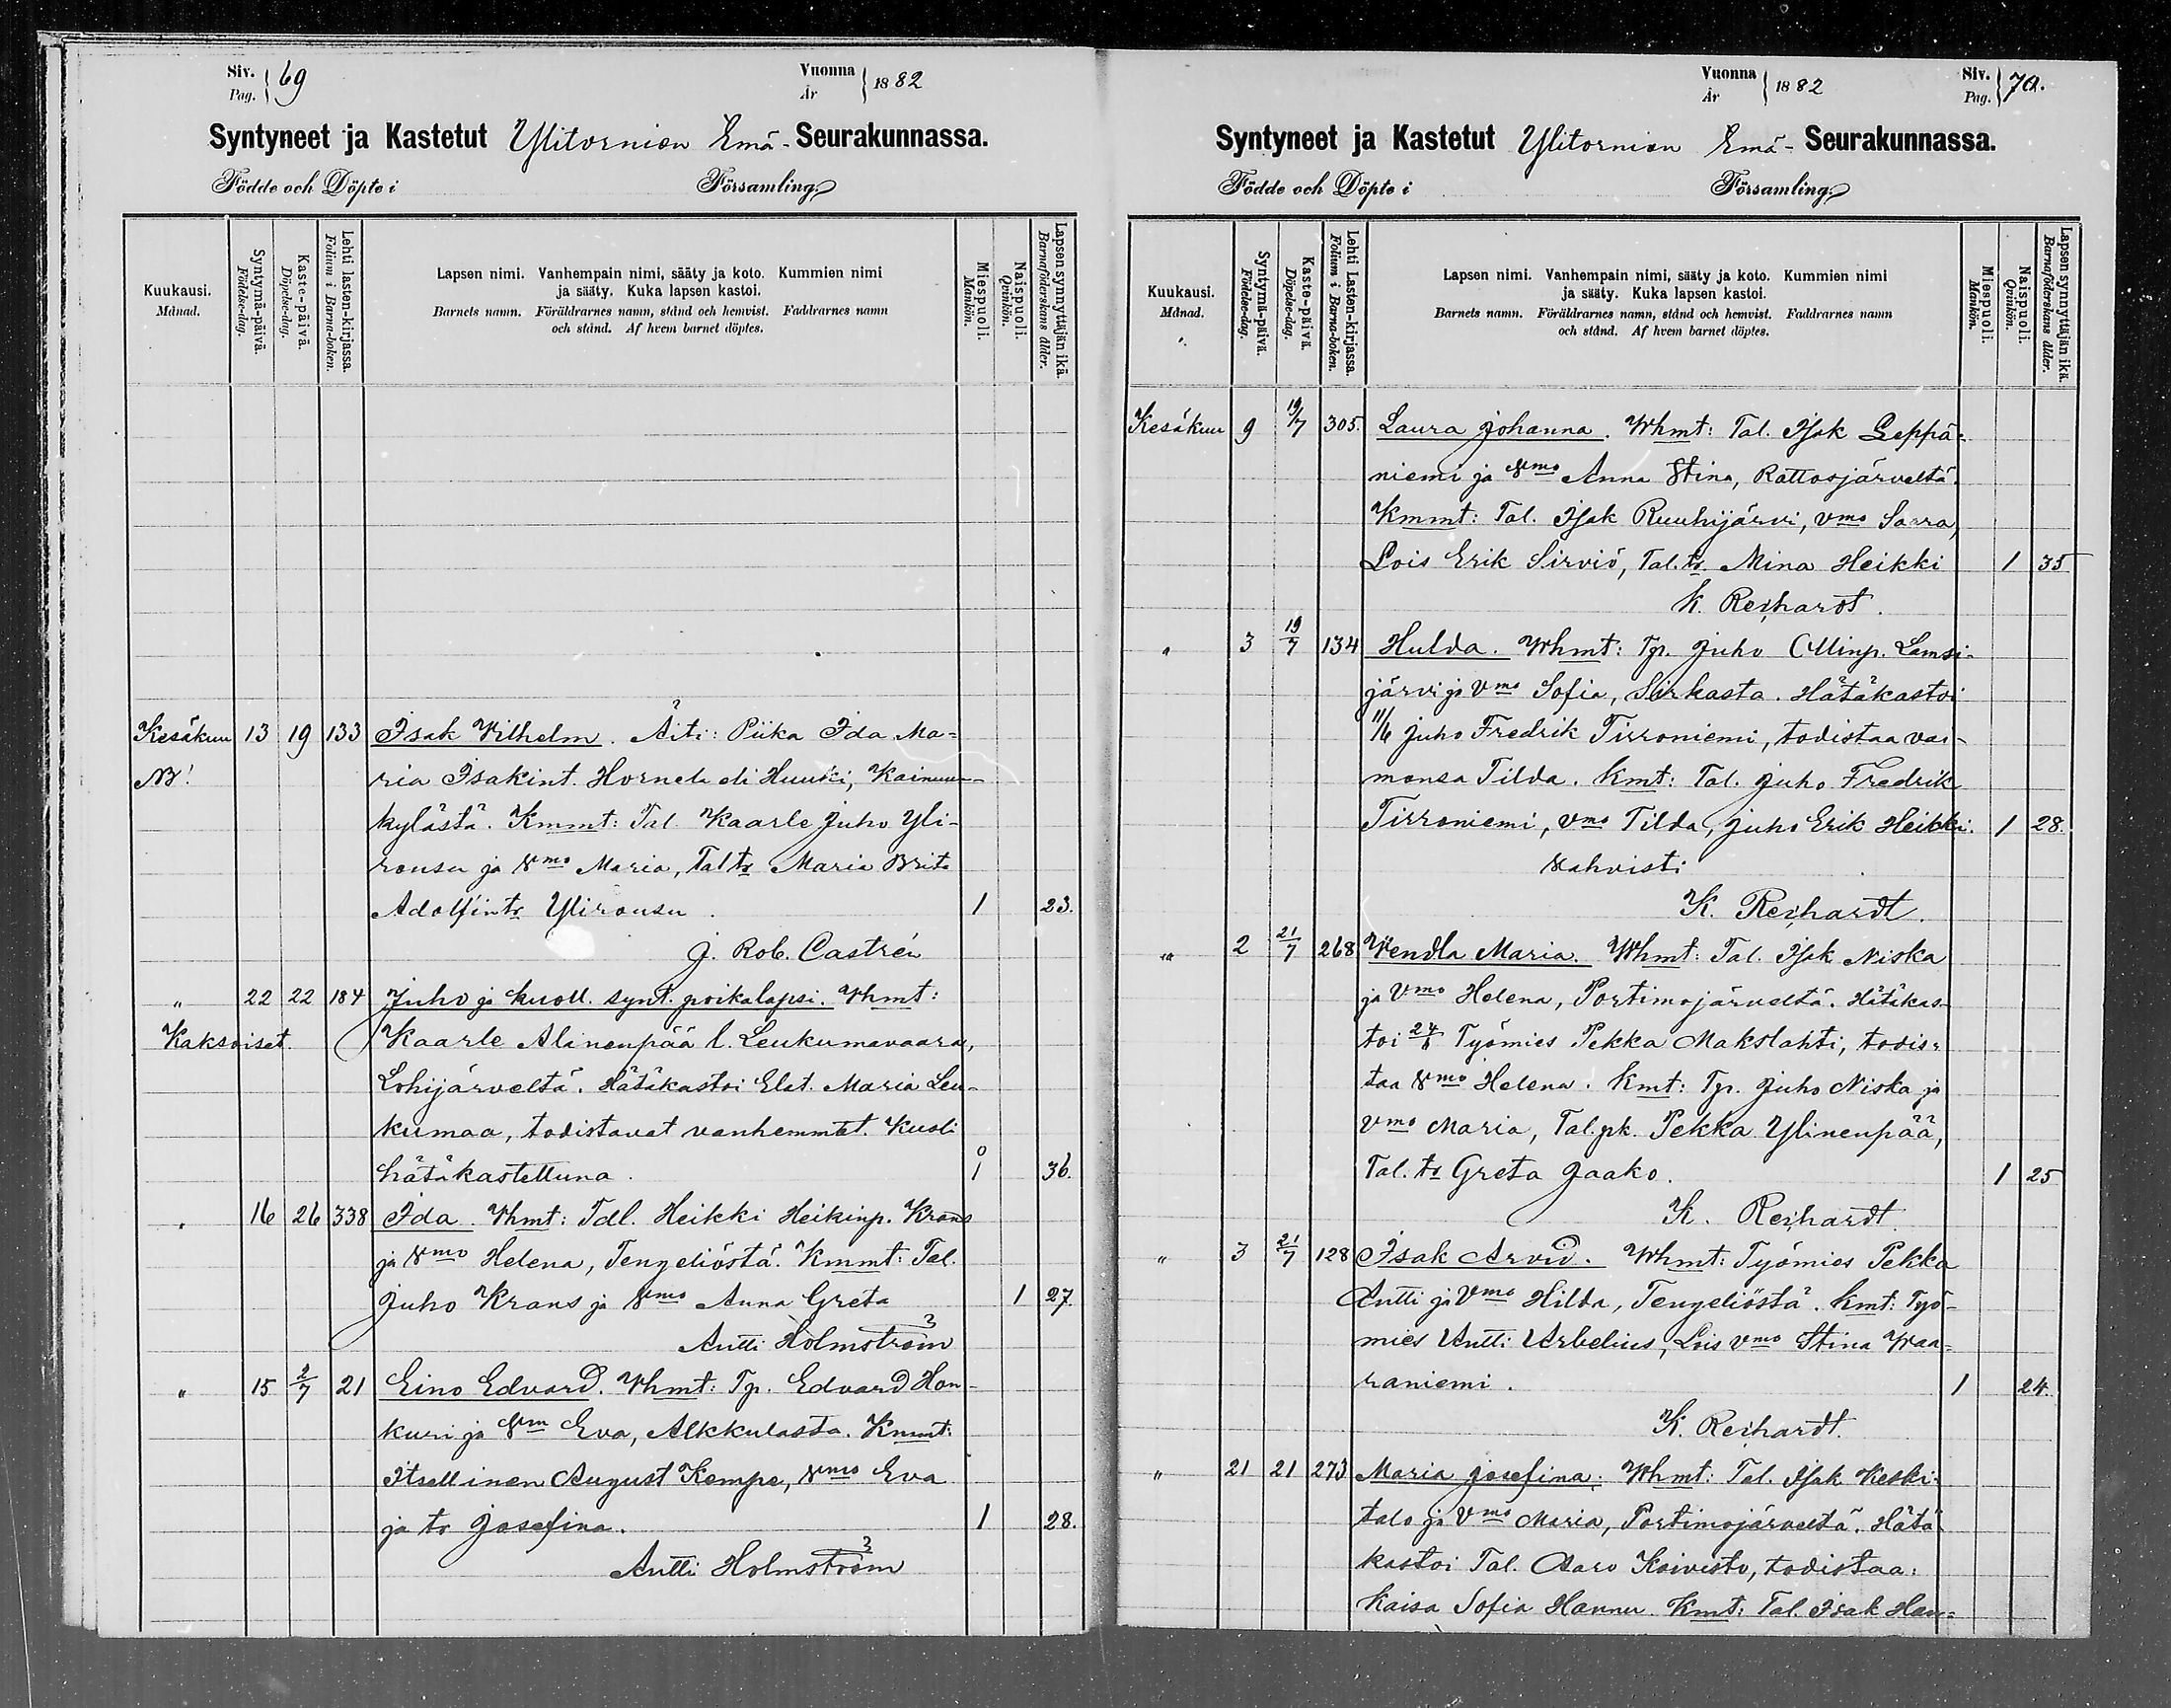 Siv. Pag. 69
Vuonna År 1882
Syntyneet ja Kastetut Ylitornion Emä-Seurakunnassa.
Födde och Döpte i Församling
Kuukausi. Månad.
Syntymä-päivä. Födelse-dag.
Kaste-päivä. Döpelse-dag.
Lehti lasten-kirjassa. Folium i Barna-boken.
Lapsen nimi. Vanhempain nimi, sääty ja koto. Kummien nimi
ja sääty. Kuka lapsen kastoi.
Barnets namn. Föräldrarnes namn, stånd och hemvist. Faddrarnes namn
och stånd. Af hvem barnet döptes.
Miespuoli. Mankön.
Naispuoli. Qvinkön.
Lapsen synnyttäjän ikä. Barnaföderskans ålder.
Kesäkuu 13 19 133 Isak Vilhelm. Äiti: Piika Ida Ma-
NB! ria Isakint. Horneta eli Huuki, Kainuun-
kylästä. Kmmt: Tal. Kaarle Juho Yli-
rousu ja Vmo Maria, Tal tr Maria Brita
Adolfintr Ylirousu. 1 23.
J. Rob. Castrén
" 22 22 184 Juho ja kuoll. synt. poikalapsi. Vhmt:
Kaksoiset. Kaarle Alinenpää l. Leukumavaara,
Lohijärveltä. Hätäkastoi Elat. Maria Leu-
kumaa, todistavat vanhemmat. Kuoli
hätäkastettuna. 0 1 36.
" 16 26 338 Ida. Vhmt: Tdl. Heikki Heikinp. Krans
ja Vmo Helena, Tengeliöstä. Kmmt: Tal.
Juho Krans ja Vmo Anna Greta 1 27.
Antti Holmström
" 15 2/7 21 Eino Edvard. Vhmt: Tp. Edvard Hon-
kuri ja Vm Eva, Alkkulasta. Kmmt:
Itsellinen August Kempe, Vmo Eva
ja tr Josefina. 1 28.
Antti Holmström
Vuonna År 1882
Siv. Pag. 70.
Syntyneet ja Kastetut Ylitornion Emä-Seurakunnassa.
Födde och Döpte i Församling
Kuukausi. Månad.
Syntymä-päivä. Födelse-dag.
Kaste-päivä. Döpelse-dag.
Lehti Lasten-kirjassa. Folium i Barna-boken.
Lapsen nimi. Vanhempain nimi, sääty ja koto. Kummien nimi
ja sääty. Kuka lapsen kastoi.
Barnets namn. Föräldrarnes namn, stånd och hemvist. Faddrarnes namn
och stånd. Af hvem barnet döptes.
Miespuoli. Mankön.
Naispuoli. Qvinkön.
Lapsen synnyttäjän ikä. Barnaföderskans ålder.
Kesäkuu 9 19/7 305. Laura Johanna. Whmt: Tal. Isak Leppä-
niemi ja Vmo Anna Stina, Rattosjärveltä.
Kmmt: Tal. Isak Ruuhijärvi, vmo Saara,
Lois Erik Sirviö, Tal. tr. Mina Heikki 1 35
K. Reihardt.
" 3 19/7 134 Hulda. Whmt: Tp. Juho Lamsi-
järvi ja Vmo Sofia, Sirkasta. Hätäkastoi
11/6 Juho Fredrik Tirroniemi, todistaa vai-
monsa Tilda. Kmt: Tal. Juho Fredrik
Tirroniemi, vmo Tilda, Juho Erik Heikki. 1 28.
Vahvisti
K. Reihardt.
" 2 21/7 268 Wendla Maria. Whmt: Tal. Isak Niska
ja Vmo Helena, Portimojärveltä. Hätäkas-
toi Työmies Pekka Makslahti, todis-
taa Vmo Helena. Kmt: Tp. Juho Niska ja
vmo Maria, Tal.pk. Pekka Ylinenpää,
Tal. tr Greta Jaako. 1 25
K. Reihardt.
" 3 21/7 128 Isak Arvid. Whmt: Työmies Pekka
Antti ja Vmo Hilda, Tengeliöstä. Kmt: Työ-
mies Antti Arbelius, Lois vmo Stina Waa-
raniemi. 1 24.
K. Reihardt.
" 21 21 273 Maria Josefina. Whmt: Tal. Isak Keski-
talo ja Vmo Maria, Portimojärveltä. Hätä
kastoi Tal. Aaro Koivisto, todistaa:
Kaisa Sofia Hannu. Kmt: Tal. Isak Han-